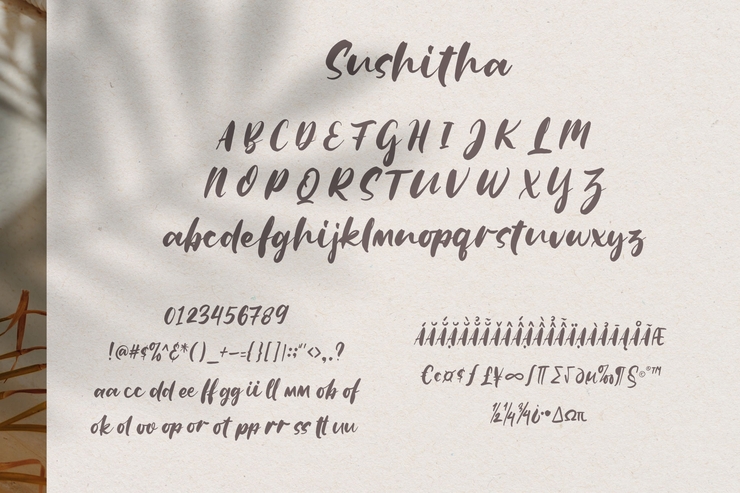 Sushitha
A B C D E F G H I J K L M
N O P Q R S T U V W X Y Z
abcdefghijklmnopqrstuvwxyz
0123456789
!@#$%^&*()_+-={}[]|:;"'<>,.?
aa cc dd ee ff gg ii ll mm ob of
ok ol oo op or ot pp rr ss tt uu
€¢¤$ƒ£¥∞∫∏∑√∂µ‰¶§©®™
½¼¾¡·•∆Ωπ